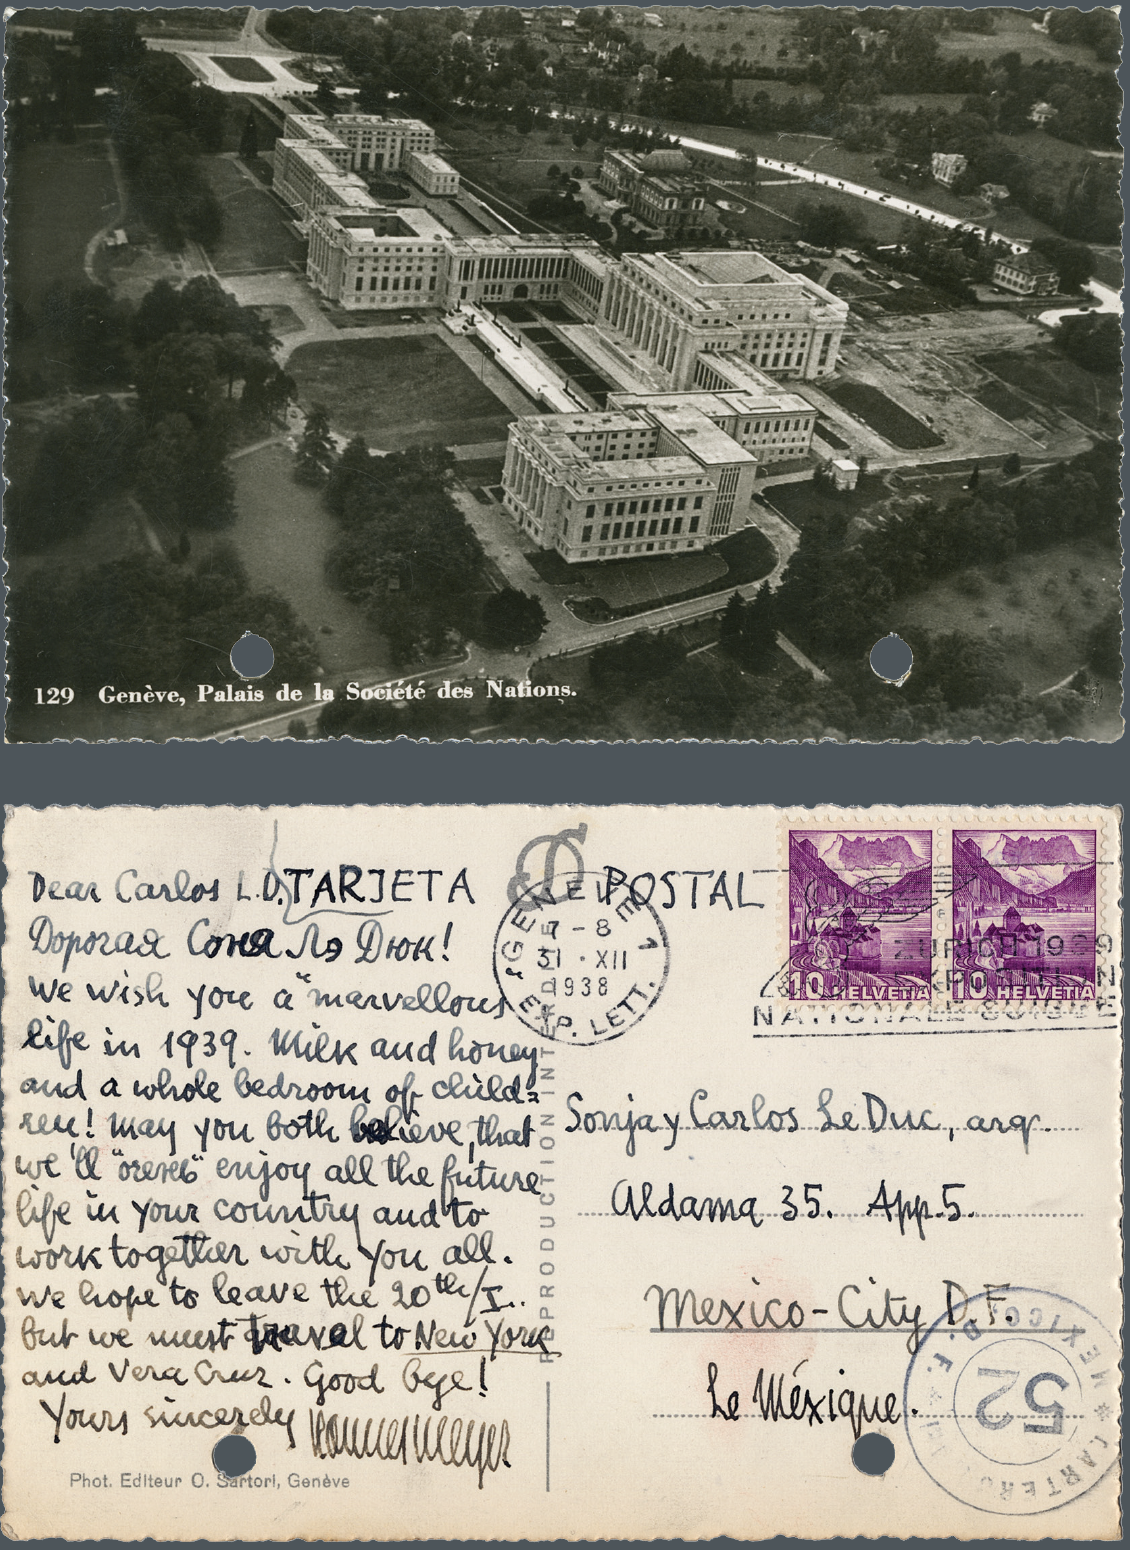 129 Genève, Palais de la Société des Nations.
Dear Carlos L.D.
TARJETA POSTAL
Дорогая Соня Лэ Дюк!
we wish you a "marvellous
life in 1939. Milk and honey
and a whole bedroom of child=
ren! May you both believe, that
we'll enjoy all the future
life in your country and to
work together with you all.
we hope to leave the 20th/I..
but we must travel to New York
and Vera Cruz. Good bye!
Yours sincerely
Hannes Meyer
Phot. Editeur O. Sartori, Genève
REPRODUCTION INTERDITE
GENÈVE 1
7-8
31·XII
1938
EXP. LETT.
ZÜRICH 1939
EXPOSITION
NATIONALE SUISSE
10 HELVETIA
10 HELVETIA
Sonja y Carlos Le Duc, arq.
Aldama 35. App. 5.
Mexico-City D.F.
Le Méxique.
MEXICO, D. F.
52